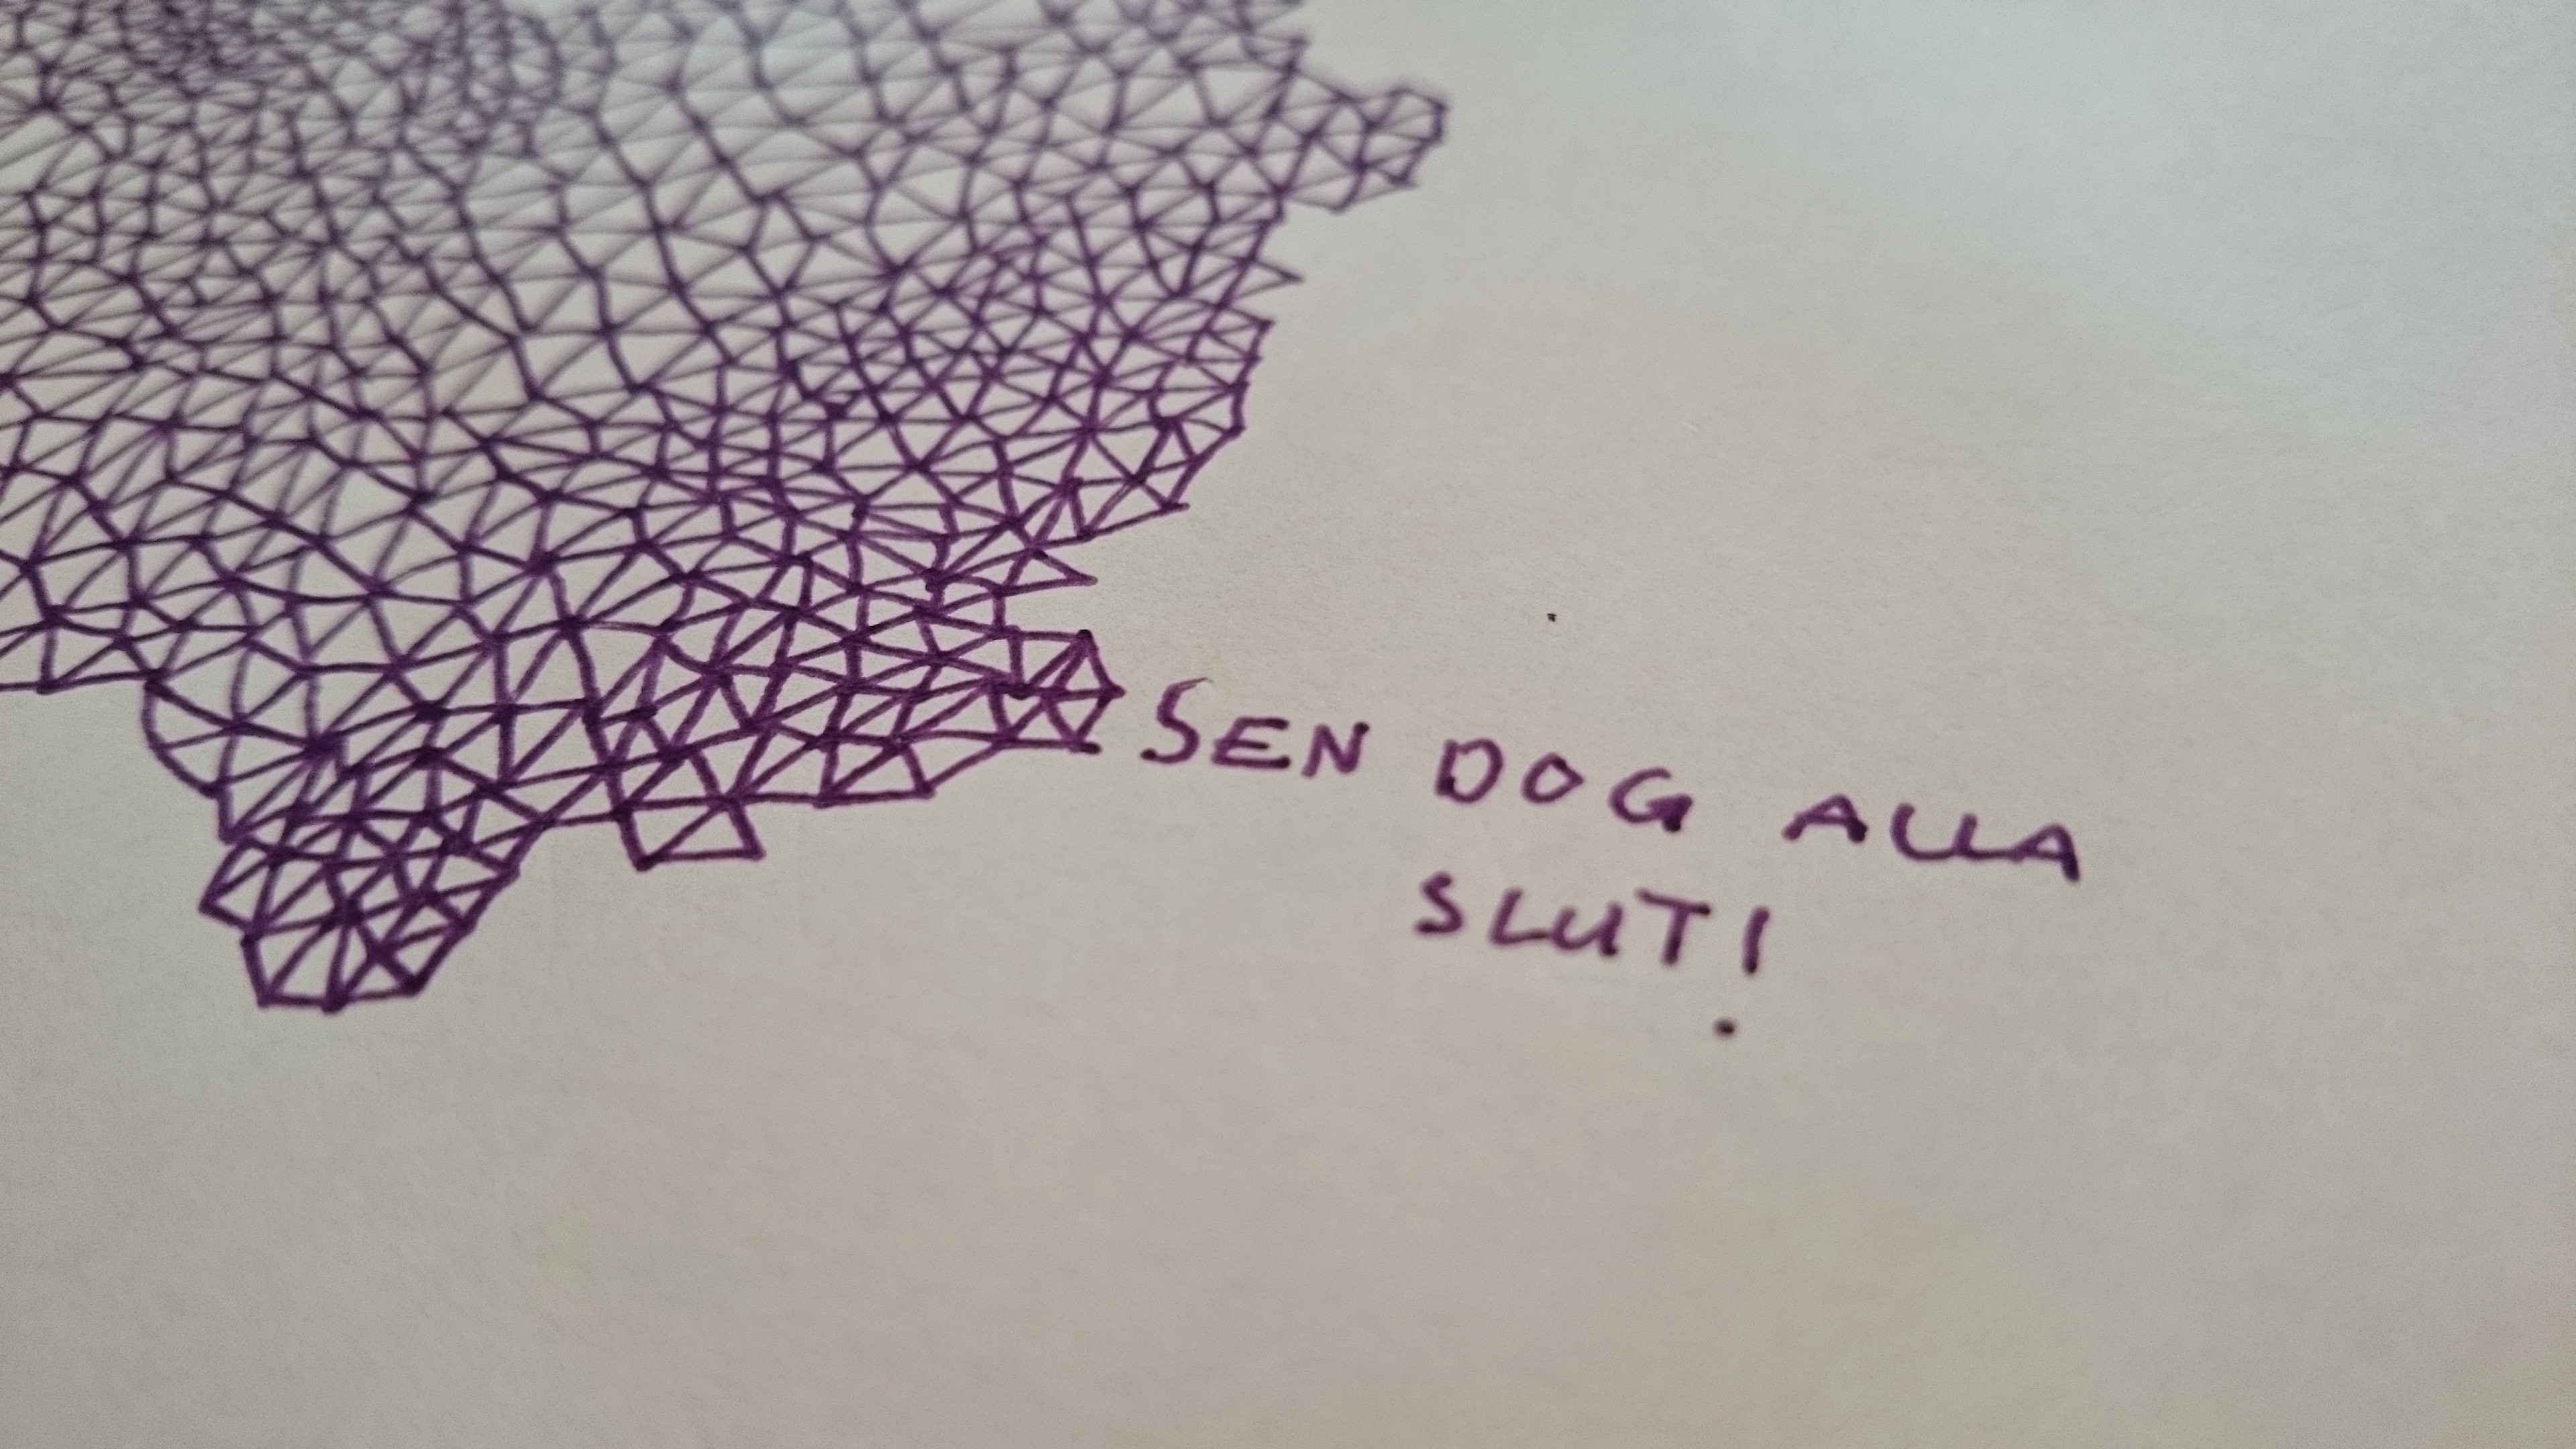 SEN DOG ALLA
SLUT!